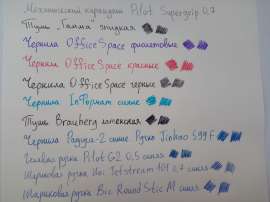 Механический карандаш Pilot Supergrip 0,7
Тушь "Гамма" жидкая
Чернила OfficeSpace фиолетовые
Чернила OfficeSpace красные
Чернила OfficeSpace черные
Чернила InFормат синие
Тушь Brauberg
Чернила Радуга-2 синие Ручка Jinhao 599 F
Гелевая ручка Pilot G2 0,5 синяя
Шариковая ручка Uni Jetstream 101 0,7 синяя
Шариковая ручка Bic Round Stic M синяя